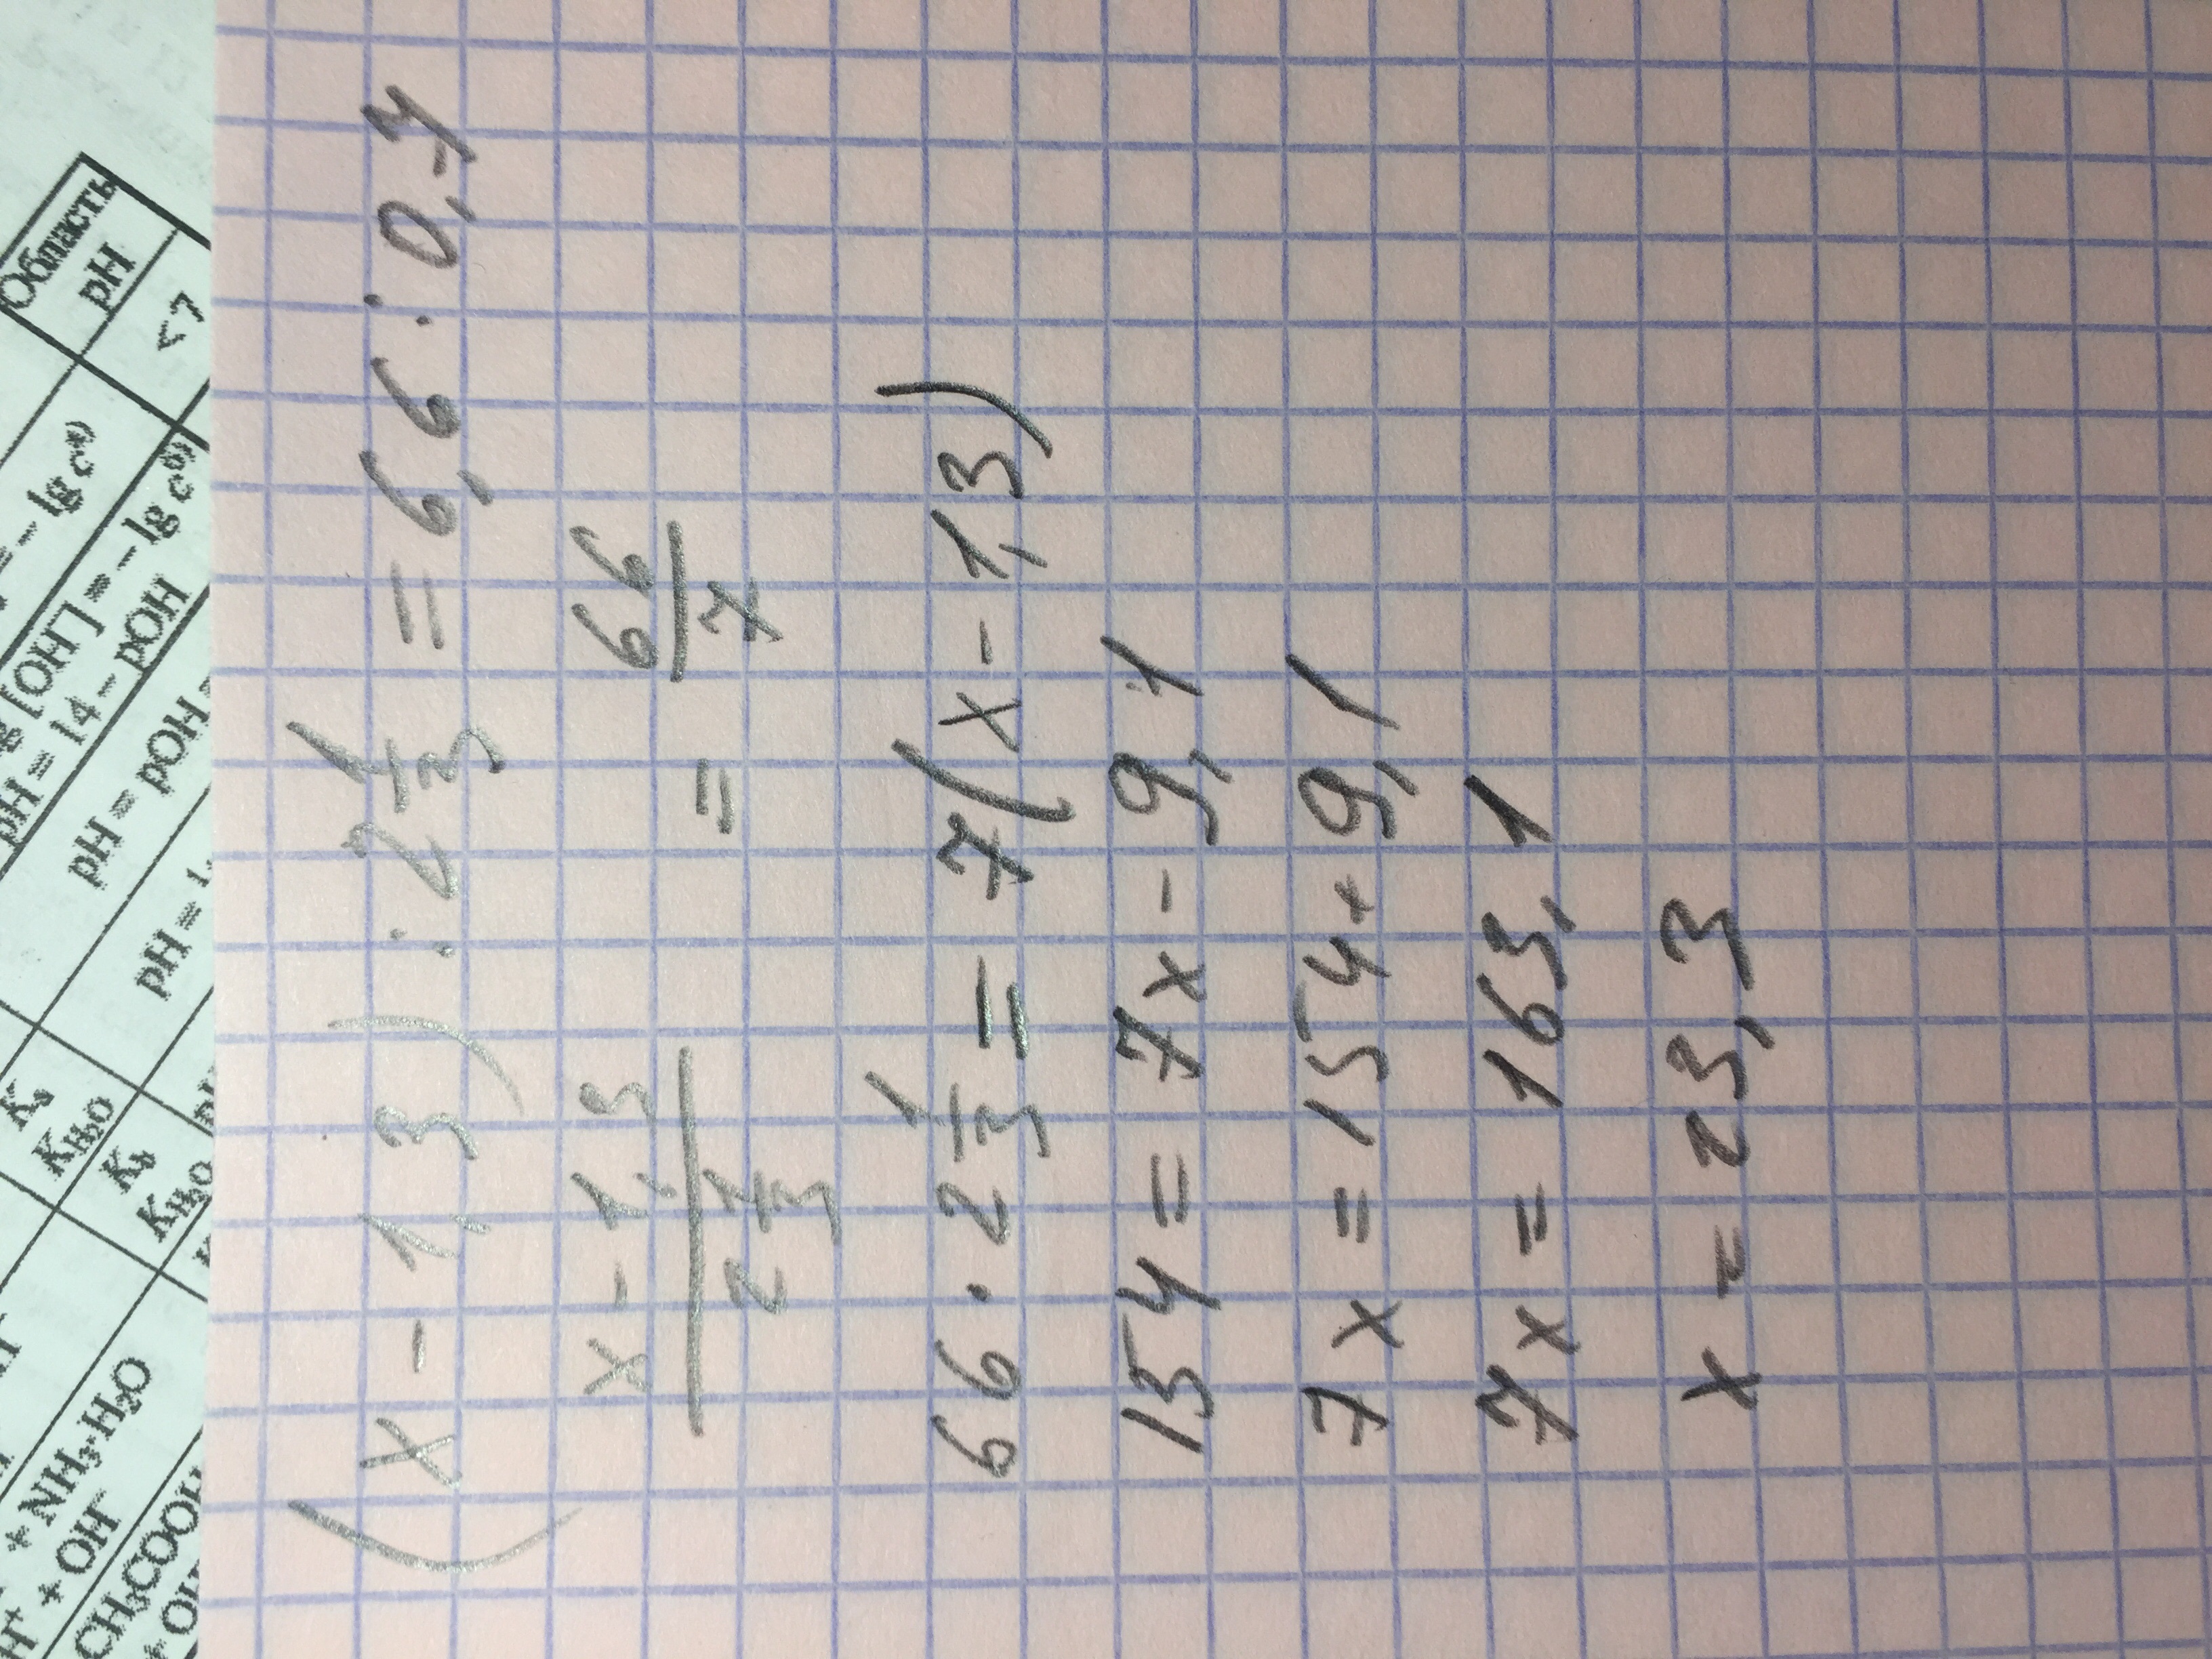 (x - 1,3) : 2 1/3 = 6,6 : 0,7
x - 1,3 / 2 1/3 = 66/7
66 · 2 1/3 = 7(x - 1,3)
154 = 7x - 9,1
7x = 154 + 9,1
7x = 163,1
x = 23,3
Область
pH
<7
= - lg c
g [OH⁻] = - lg c
pH = 14 - pOH
pH = pOH
pH =
Kₐ
K_H₂O
K_b
K_H₂O
+ NH₃·H₂O
H⁺ + OH⁻
CH₃COOH